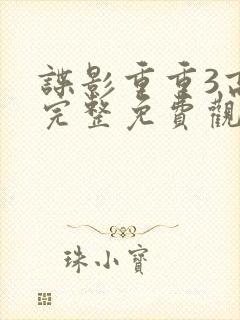 諜影重重3高
完整免費觀
珠小寶